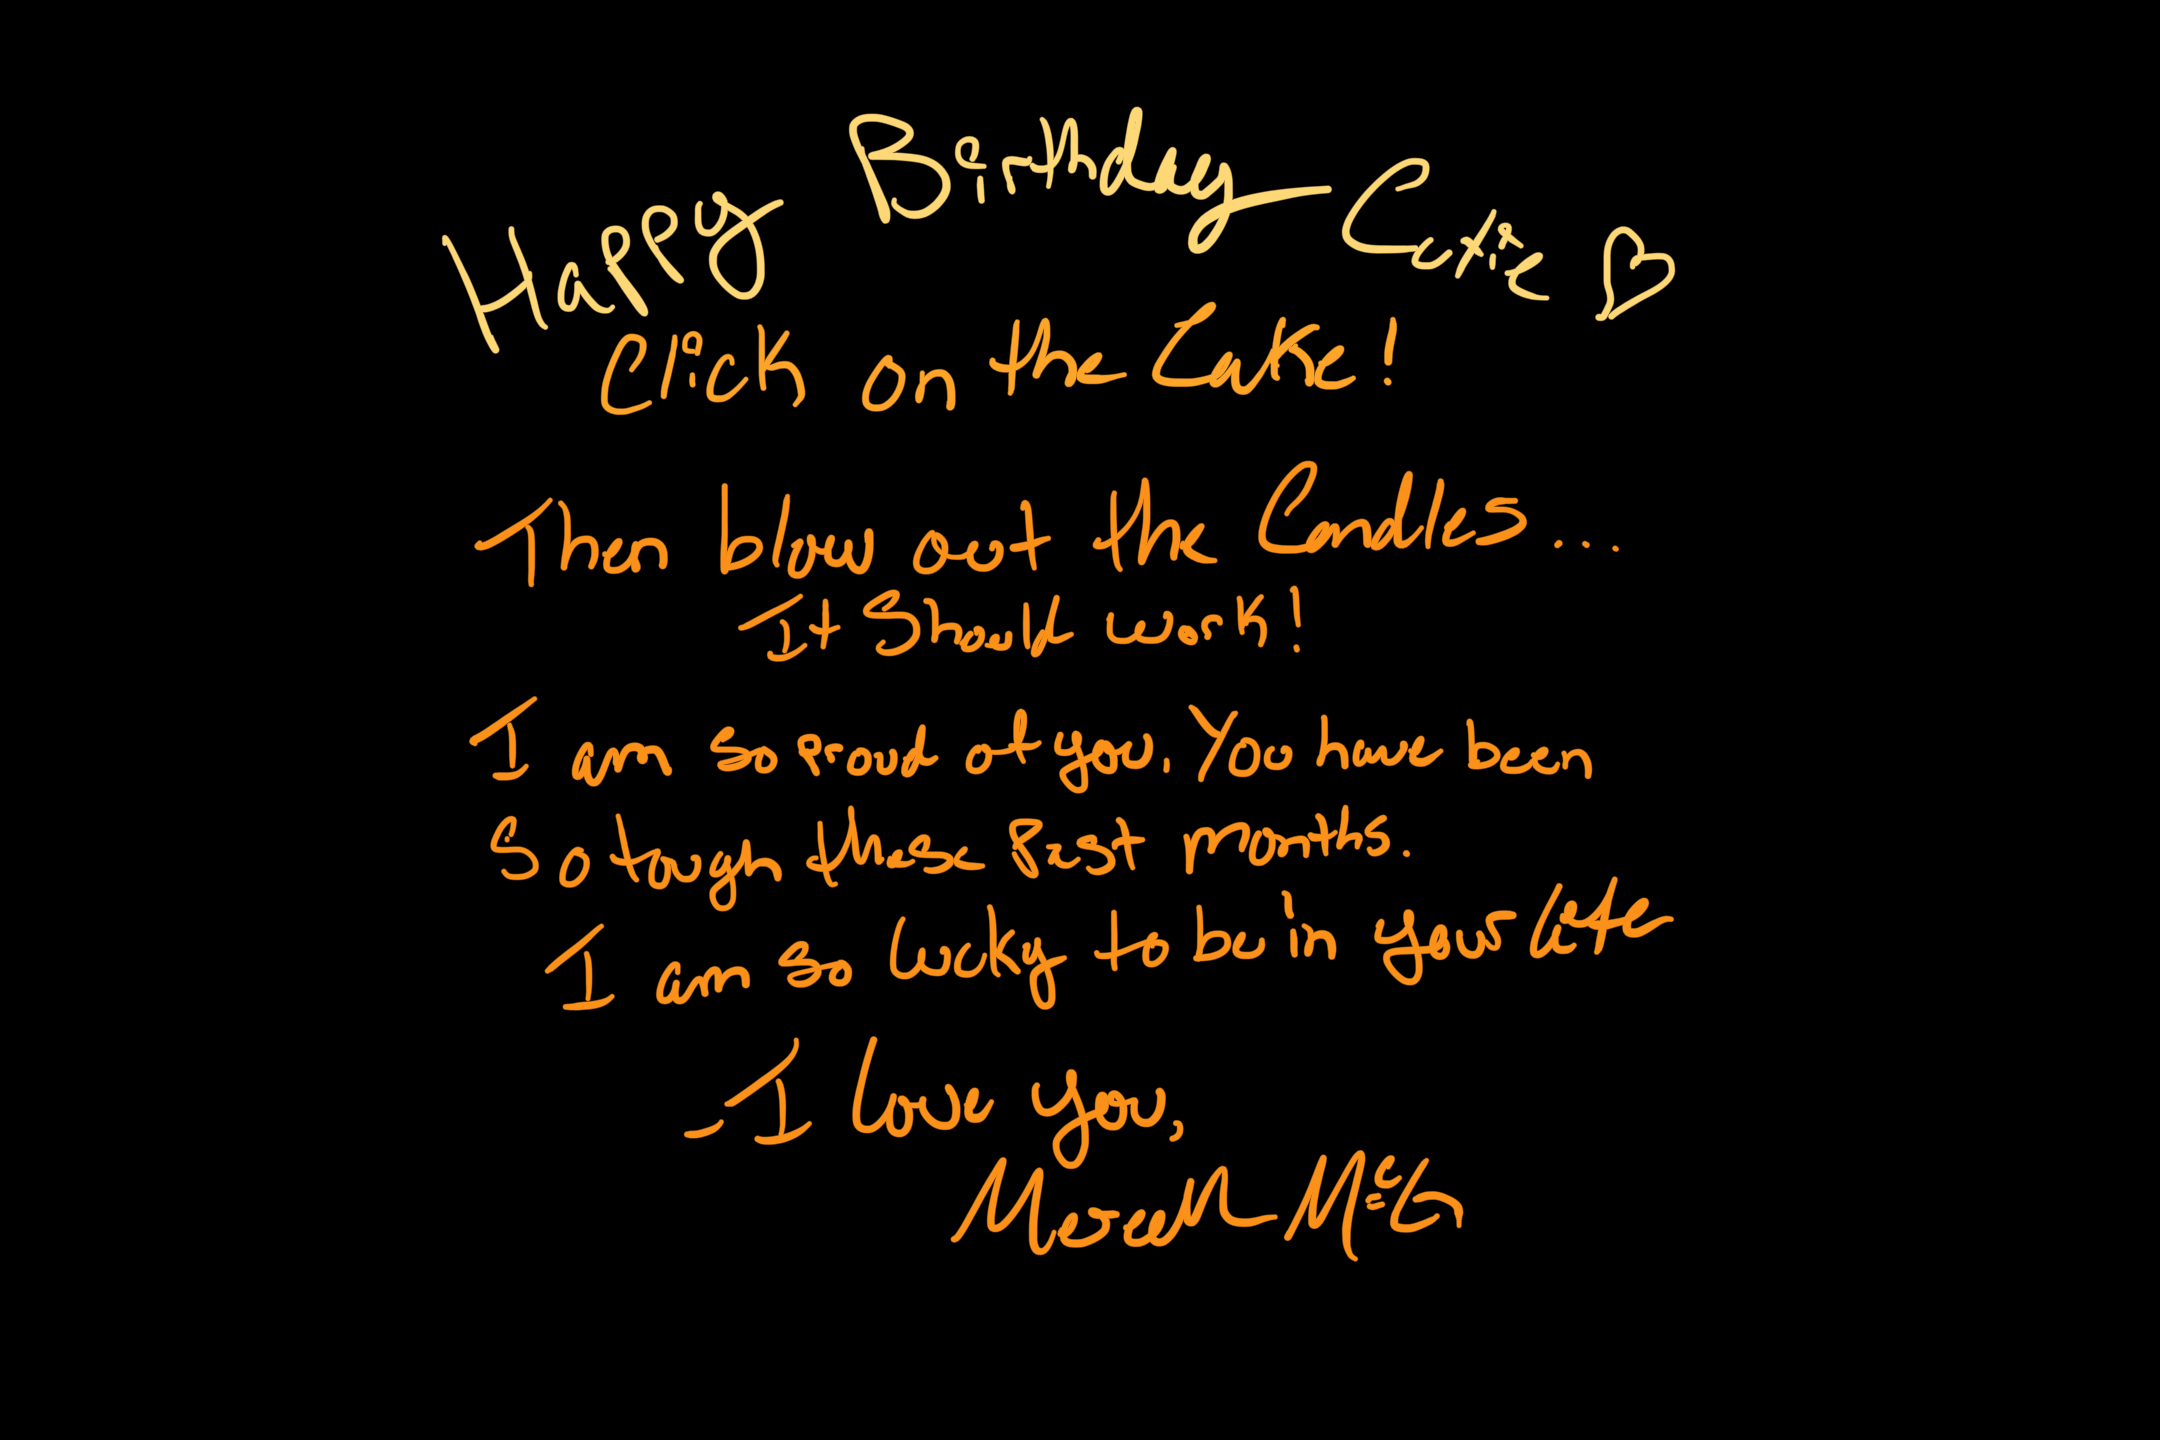 Happy Birthday Cutie ♡
Click on the Cake!
Then blow out the Candles...
It Should work!
I am so proud of you. You have been
So tough these past months.
I am so lucky to be in your life
-I love you,
McG